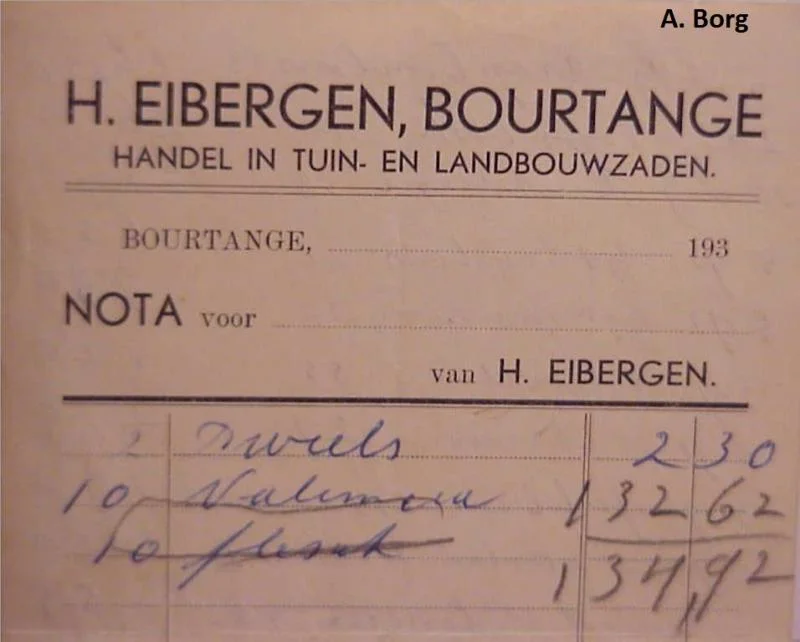 A. Borg
H. EIBERGEN, BOURTANGE
HANDEL IN TUIN- EN LANDBOUWZADEN.
BOURTANGE, 193
NOTA voor
van H. EIBERGEN.
2 Dweils 2 30
10 132 62
10 134,92